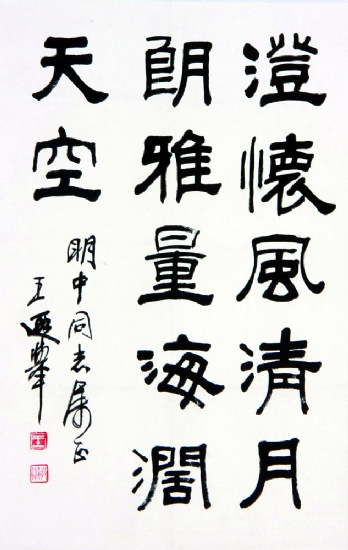 澄懷風清月
朗雅量海濶
天空
明中同志属正
王遐舉